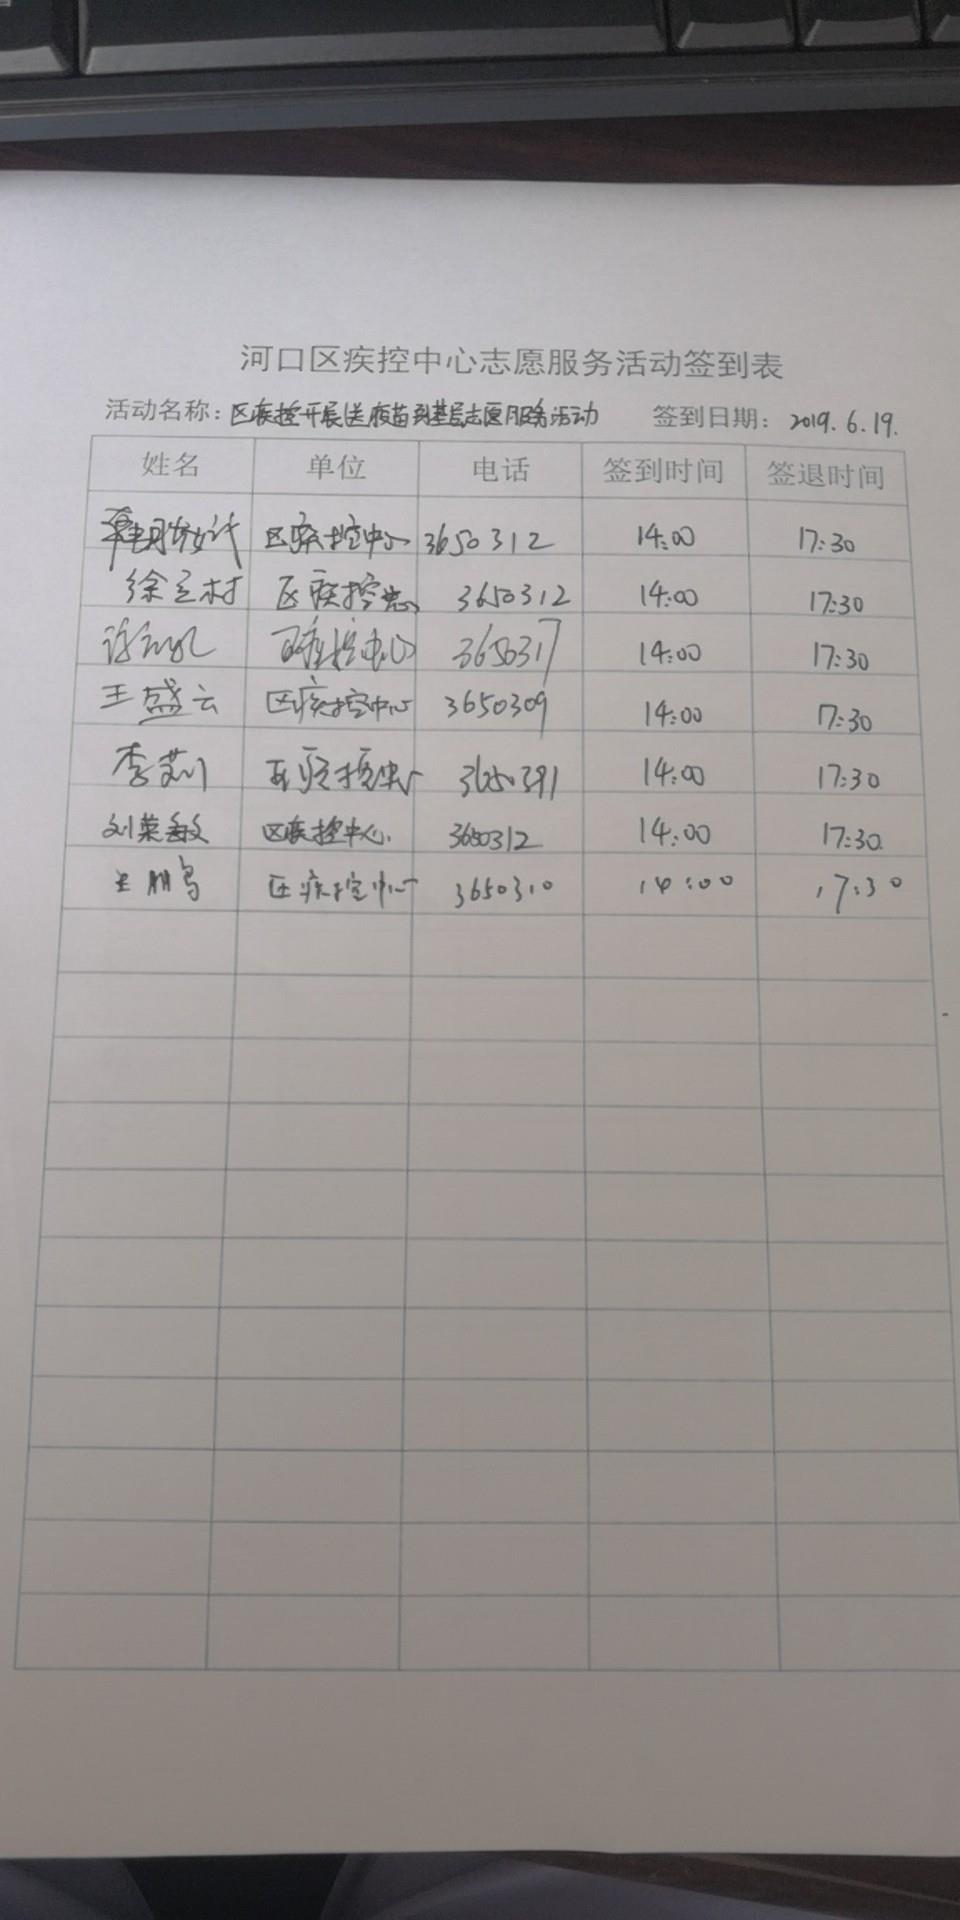 河口区疾控中心志愿服务活动签到表
活动名称：区疾控开展送疫苗到基层志愿服务活动 签到日期：2019.6.19.
姓名 单位 电话 签到时间 签退时间
区疾控中心 3650312 14:00 17:30
徐立村 区疾控中心 3650312 14:00 17:30
区疾控中心 3650317 14:00 17:30
王盛云 区疾控中心 3650309 14:00 17:30
李 区疾控中心 3650391 14:00 17:30
刘荣敏 区疾控中心. 3650312 14:00 17:30.
王鹏鸟 区疾控中心 3650310 14:00 17:30